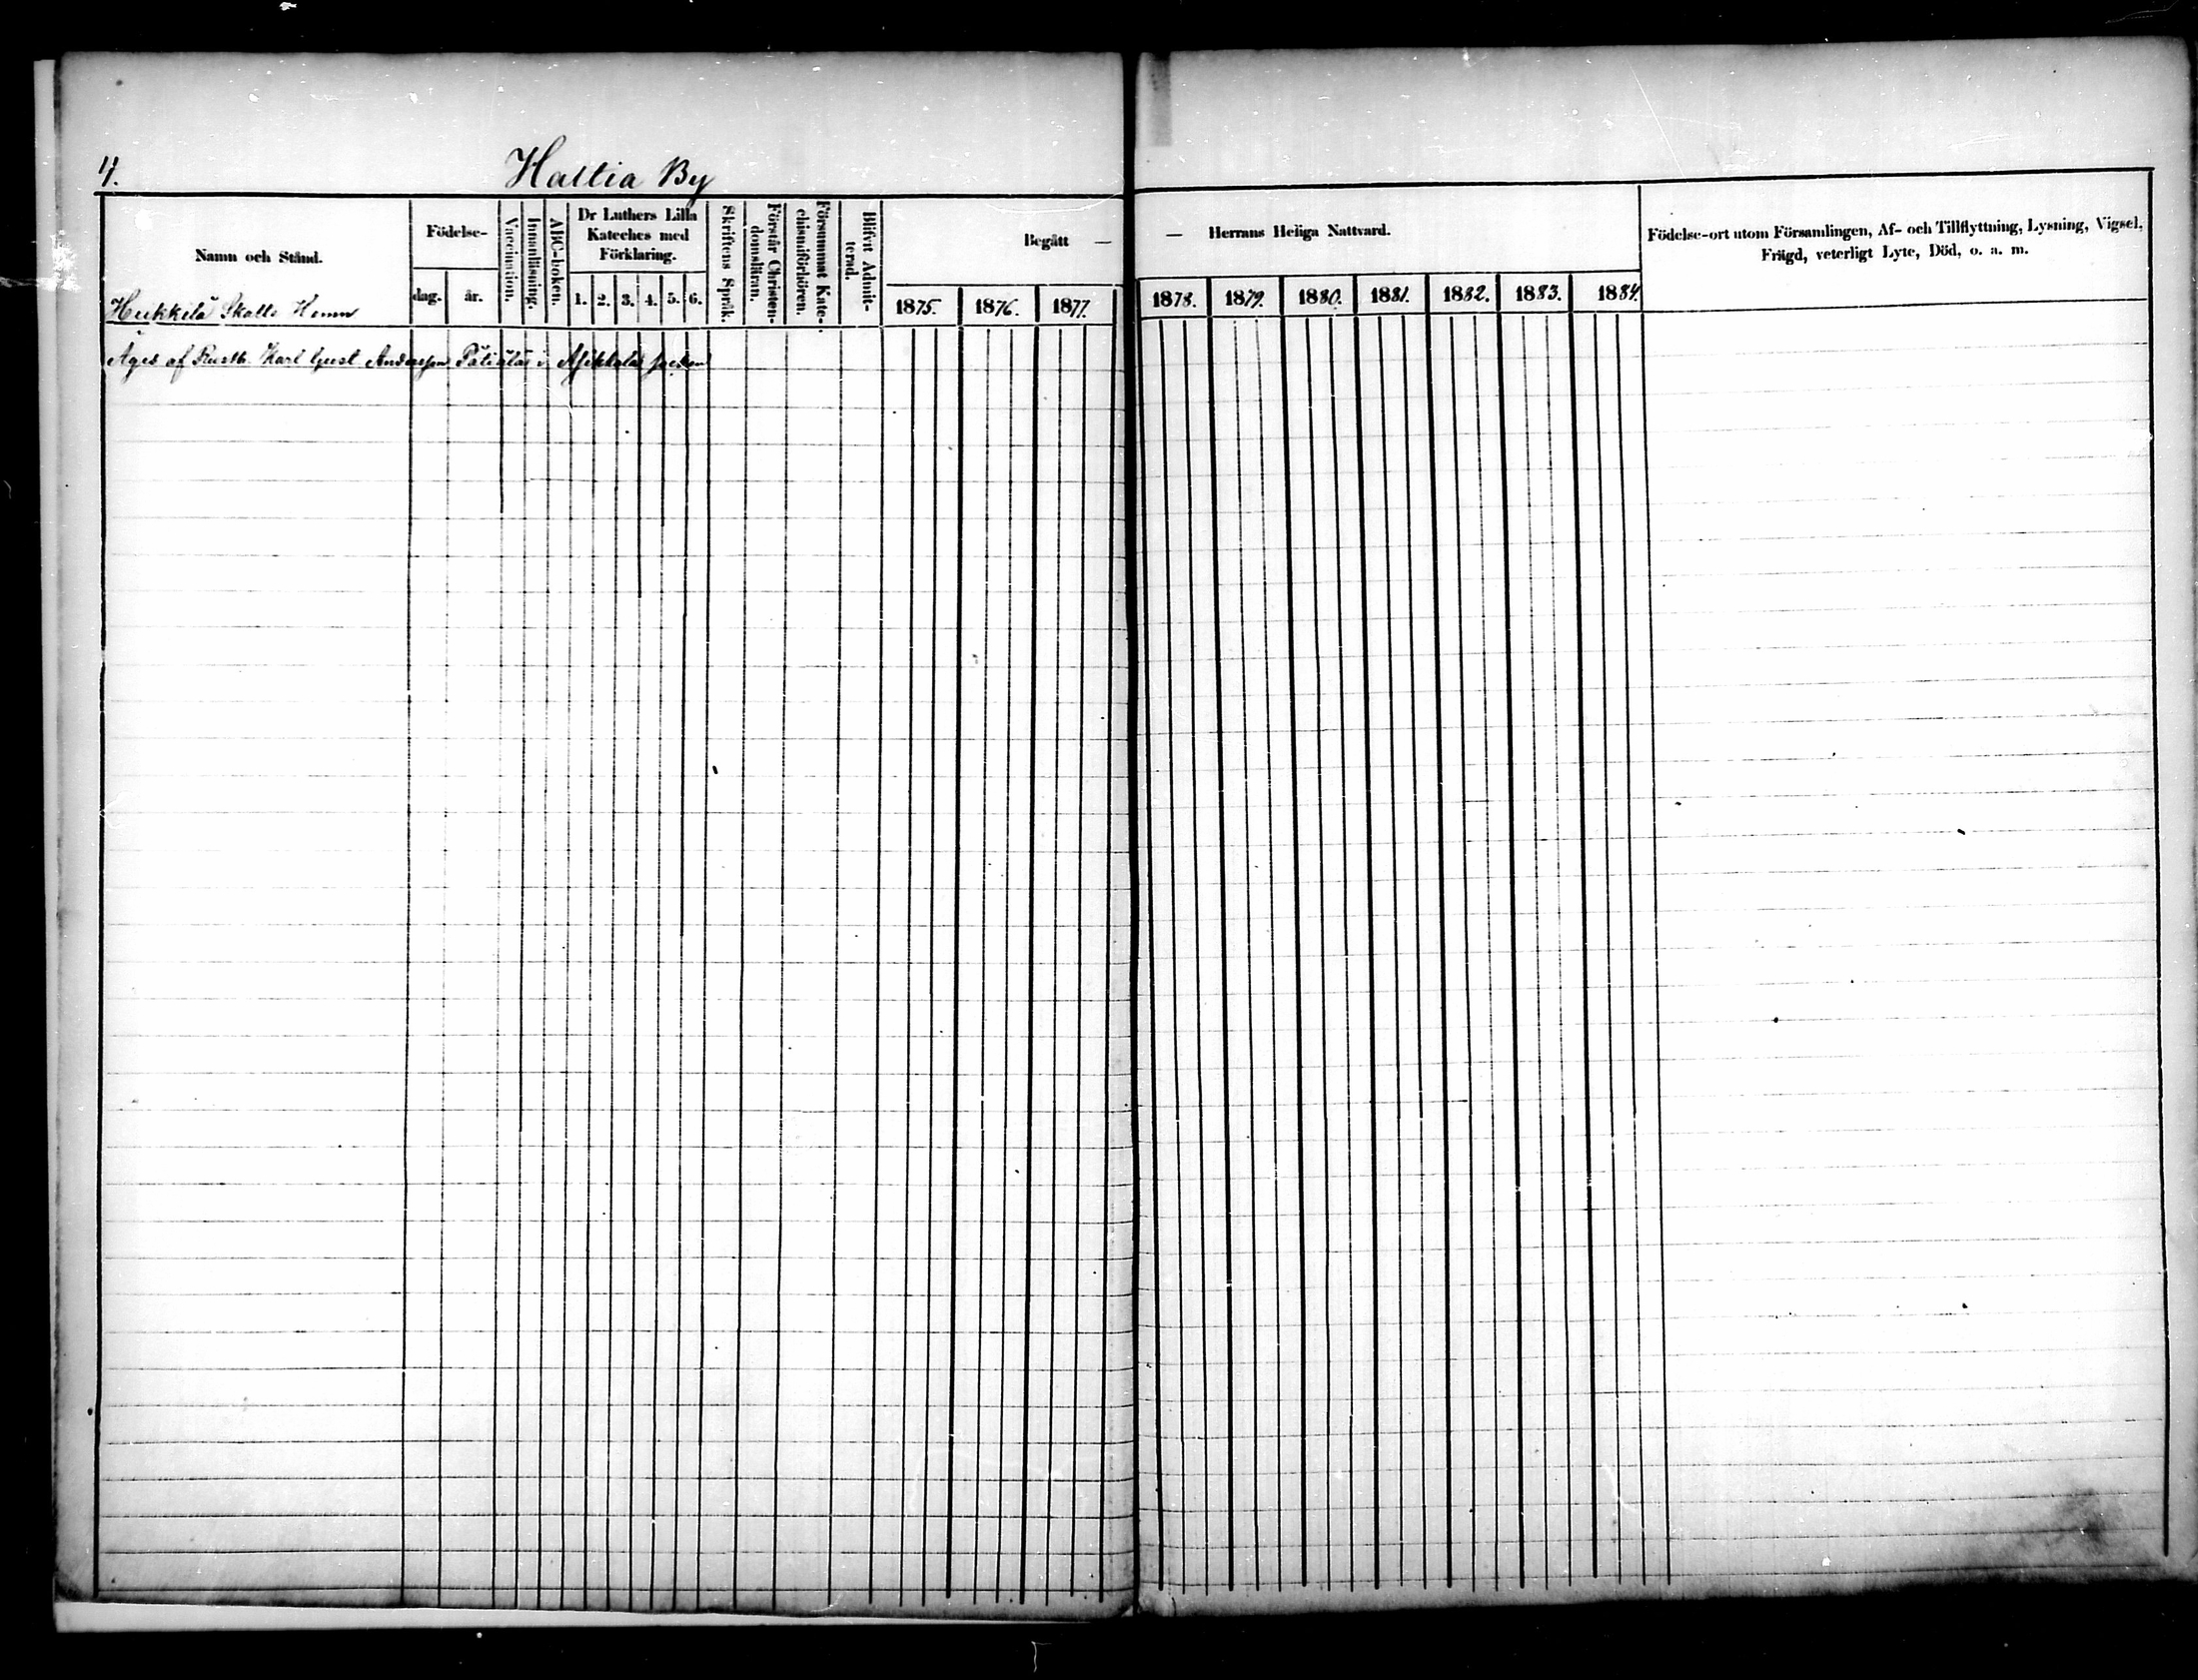 4.
Hattia By
Namn och Stånd.
Födelse-
dag.
år.
Vaccination.
Innanläsning.
ABC-boken.
Dr Luthers Lilla
Kateches med
Förklaring.
1. 2. 3. 4. 5. 6.
Skriftens Språk.
Förstår Christen-
domsläran.
Försummat Kate-
chismiförhören.
Blifvit Admit-
terad.
Begått —
1875. 1876. 1877.
— Herrans Heliga Nattvard.
1878. 1879. 1880. 1881. 1882. 1883. 1884.
Födelse-ort utom Församlingen, Af- och Tillflyttning, Lysning, Vigsel,
Frägd, veterligt Lyte, Död, o. a. m.
Heikkilä Skatte Hemm
Äges af Rusth. Karl Gust Andersson i Asikkala socken